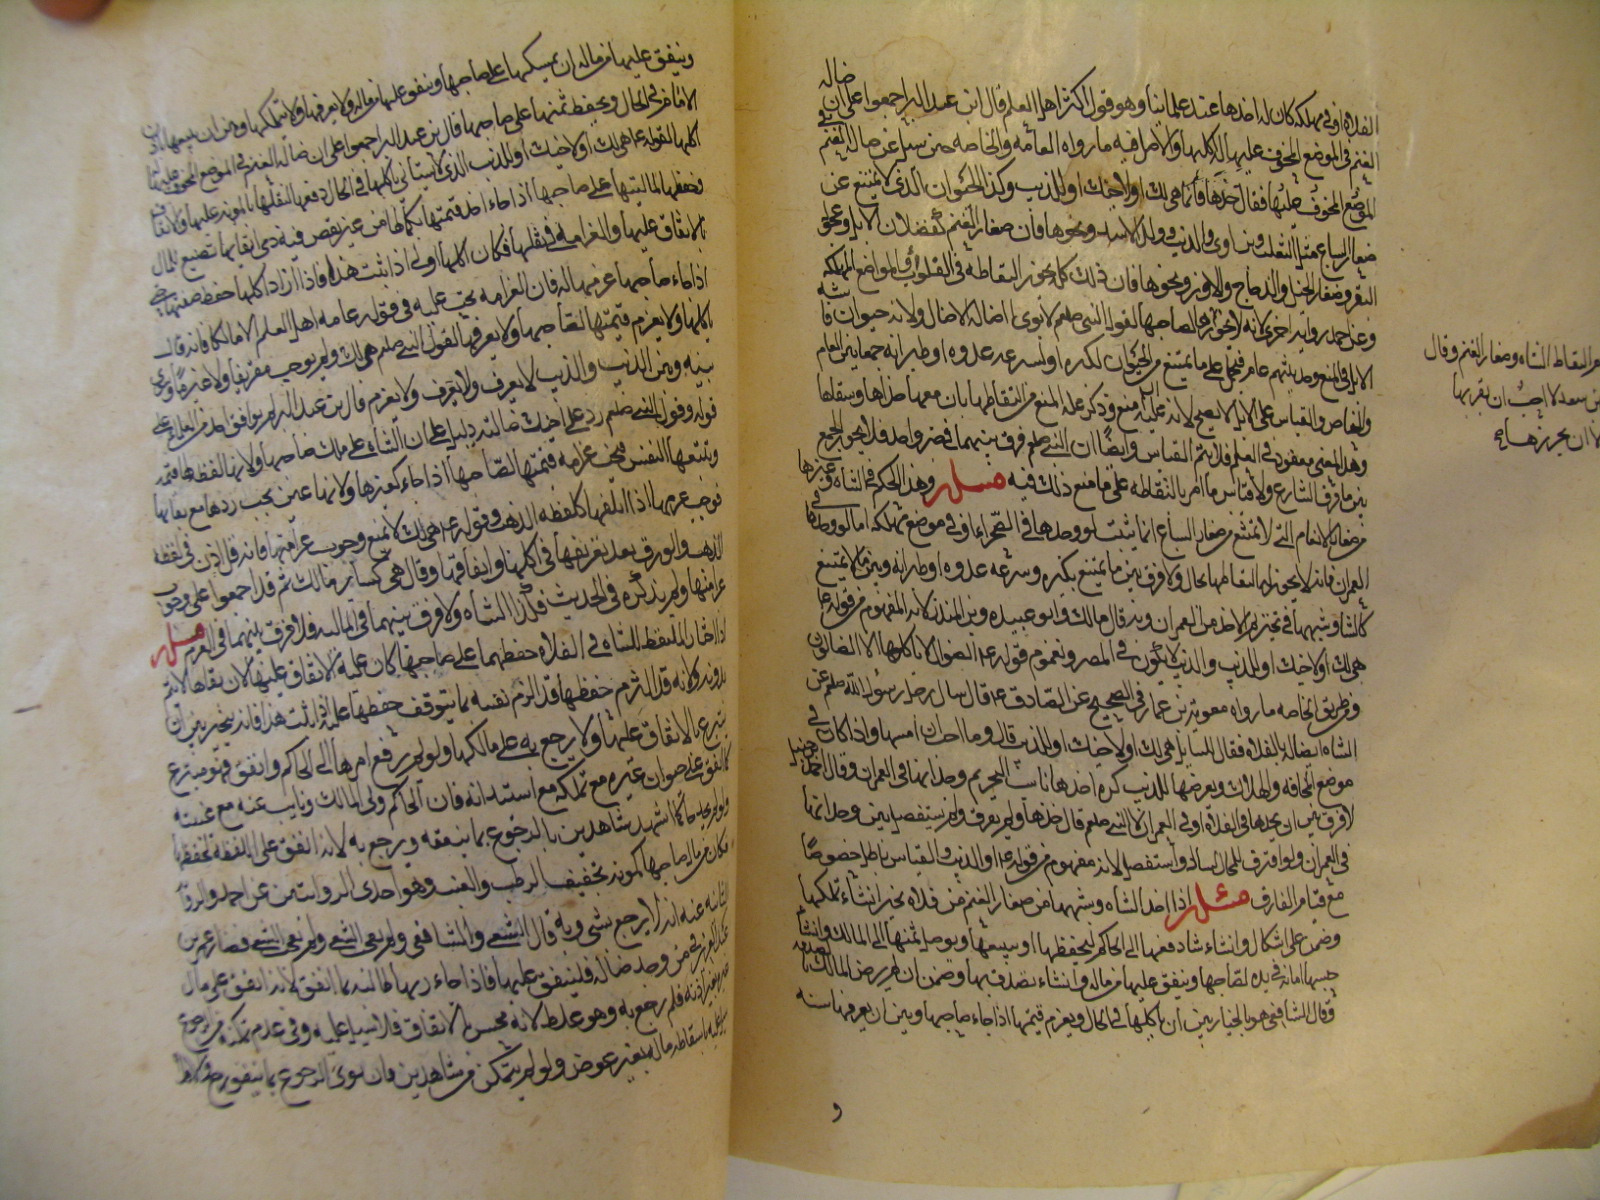 الفلاة او في مهلكة كان له اخذها عند علمائنا وهو قول اكثر اهل العلم قال ابن عبد البر اجمعوا على ان ضالة
الغنم في الموضع المخوف عليها له اكلها والاصل فيه ما رواه العامه والخاصه حين سيل عن ضالة الغنم في
الموضع المخوف عليها فقال خذها فانما هي لك او لاخيك او للذيب وكذا الحيوان الذي لا يمتنع عن
صغار السباع مثل الثعلب وابن اوى والذيب وولد الاسد ونحوها فان صغار الغنم كفصلان الابل وعجول
البقر وصغار الخيل والدجاج والاوز ونحوها فان ذلك كله يجوز التقاطه في الفلوات والمواضع المهلكه
وعن احمد رواية اخرى انه لا يجوز لغير صاحبها لقول النبي صلعم لا يؤوى الضالة الا ضال ولانه حيوان
الابل في المنع وحديثهم عام فيحمل على ما يمتنع من الحيوان لكبره او لسرعه عدوه او طيرانه جمعا بين العام
والخاص والقياس على الابل لا يصح لانه علل منع وذكر علة المنع من التقاطها بان معها حذاها وسقاها
وهذا المعنى مفقود في الغنم فلا يتم القياس وايضا ان النبي صلعم فرق بينهما في خبر واحد فلا يجوز الجمع
بين ما فرق الشارع ولا قياس ما امر بالتقاطه على ما منع ذلك فيه مسلة وهذا الحكم في الشاة وغيرها
من صغار الانعام التي لا تمتنع من صغار السباع انما يثبت لو وجدها في الصحراء او في موضع مهلكه اما لو وجدها في
العمران فانه لا يجوز له التقاطها بحال ولا فرق بين ما يمتنع بكبره وسرعه عدوه او طيرانه وبين ما لا يمتنع
كالشاة وشبهها في تحريم الاخذ من العمران وبه قال مالك وابو عبيده وابن المنذر لانه المفهوم من قوله ع
هي لك او لاخيك او للذيب والذيب لا يكون في المصر ولعموم قوله ع الضوال لا ياكلها الا الضالون
ومن طريق الخاصه ما رواه معوية بن عمار في الصحيح عن الصادق ع قال سال رجل رسول الله صلعم عن
الشاة الضالة بالفلاة فقال للسايل هي لك او لاخيك او للذيب قال وما احب ان امسها واذا كان في
موضع المخافه والهلاك ويعرضها للذيب كره اخذها ناسب التحريم وجدانها في العمران وقال احمد بن حنبل
لا فرق بين ان يجدها في الفلاة او في العمران لان النبي صلعم قال خذها ولم يعرف ولم يستفصل بين وجدانها
في العمران ولو افترق الحال لسال واستفصل لانه مفهوم من قوله ع او الذيب والقياس باطل خصوصا
مع قيام الفارق مسئلة اذا اخذ الشاة وشبهها من صغار الغنم من فلاة تخير ان شاء تملكها
وضمن على اشكال وان شاء دفعها الى الحاكم ليحفظها او يبيعها ويوصل ثمنها الى المالك وان شاء
حبسها امانة في يده لصاحبها وينفق عليها من ماله وان شاء تصدق بها وضمن ان لم يرض المالك بالصدقه
وقال الشافعي هو بالخيار بين ان ياكلها في الحال ويغرم قيمتها اذا جاء صاحبها وبين ان يعرفها سنة
التقاط الشاه وصغار الغنم وقال
بن سعد لا احب ان يقربها
الا ان يحرزها
وينفق عليها من ماله ان يمسكها على صاحبها وينفق عليها من ماله ولا يعرفها ولا يتملكها وبين ان يبيعها باذن
الامام في الحال ويحفظ ثمنها على صاحبها قال بن عبد البر اجمعوا على ان ضالة الغنم في الموضع المخوف عليها له
اكلها لقوله ع هي لك او لاخيك او للذيب الذي لا يستأني باكلها في الحال
وحفظها لماليتها على صاحبها اذا جاء اخذ قيمتها بكمالها من غير نقص فيه وفي ابقائها تضييع للمال
بالانفاق عليها والغرامه في نقلها فكان اكلها اولى اذا ثبت هذا فاذا اراد اكلها حفظ صفتها
اذا جاء صاحبها غرمها له فان الغرامه يجب عليه في قول عامه اهل العلم الا مالكا فانه قال
ياكلها ولا يغرم قيمتها لصاحبها ولا يعرفها لقول النبي صلعم هي لك ولم يوجب تعريفا ولا غرما وسوى
بينه وبين الذيب والذيب لا يعرف ولا يغرم قال بن عبد البر لم يوافق احد من العلماء على
قوله وقول النبي صلعم رد على اخيك ضالته دليل على ان الشاة على ملك صاحبها ولانها لقطة لها قيمه
وتتبعها النفس فيجب غرامه قيمتها لصاحبها اذا جاء كغيرها ولانها عين يجب ردها مع بقايها
فوجب غرمها اذا اتلفها كلقطه الذهب وقوله ع هي لك لا يمنع وجوب غرامتها فانه قد اذن في لقطه
الذهب والورق بعد تعريفها في اكلها وانفاقها وقال هي كساير مالك ثم قد اجمعوا على وجوب
غرامتها ولم يذكره في الحديث فكذا الشاه ولا فرق بينهما في الماليه ولا فرق بينهما في الغرم مسله
اذا اختار الملتقط للشاة في الفلاه حفظها على صاحبها كان عليه الانفاق عليها لان بقاها لا يتم
بدونه ولانه قد التزم حفظها قد الزم نفسه بما يتوقف حفظها عليه اذا ثبت هذا فانه يتخير بين ان
يتبرع بالانفاق عليها ولا يرجع به على مالكها ولو لم يرفع امرها الى الحاكم وانفق فهو متبرع
كما لو انفق على حيوان غيره مع تملكه مع استيذانه فان الحاكم ولي المالك ونايب عنه مع غيبته
ولو لم يجد حاكما اشهد شاهدين بالرجوع بما ينفقه ويرجع به لانه انفق على اللقطة لحفظها
فكان من مال صاحبها كمونه تجفيف الرطب والعنب وهو احدى الروايتين عن احمد والرواية
الثانيه عنه انه لا يرجع بشي وبه قال الشعبي والشافعي ولم يعجب الشعبي قضاء عمر بن
عبد العزيز في من وجد ضاله فلينفق عليها فاذا جاء ربها طالبه بما انفق لانه انفق على مال
غيره بغير اذنه فلم يرجع به وهو غلط لانه محسن بالانفاق فلا سبيل عليه وفي عدم تمكنه من الرجوع
سبيل عليه باسقاط ماله بغير عوض ولو لم يتمكن من شاهدين فان نوى الرجوع بما ينفق
و